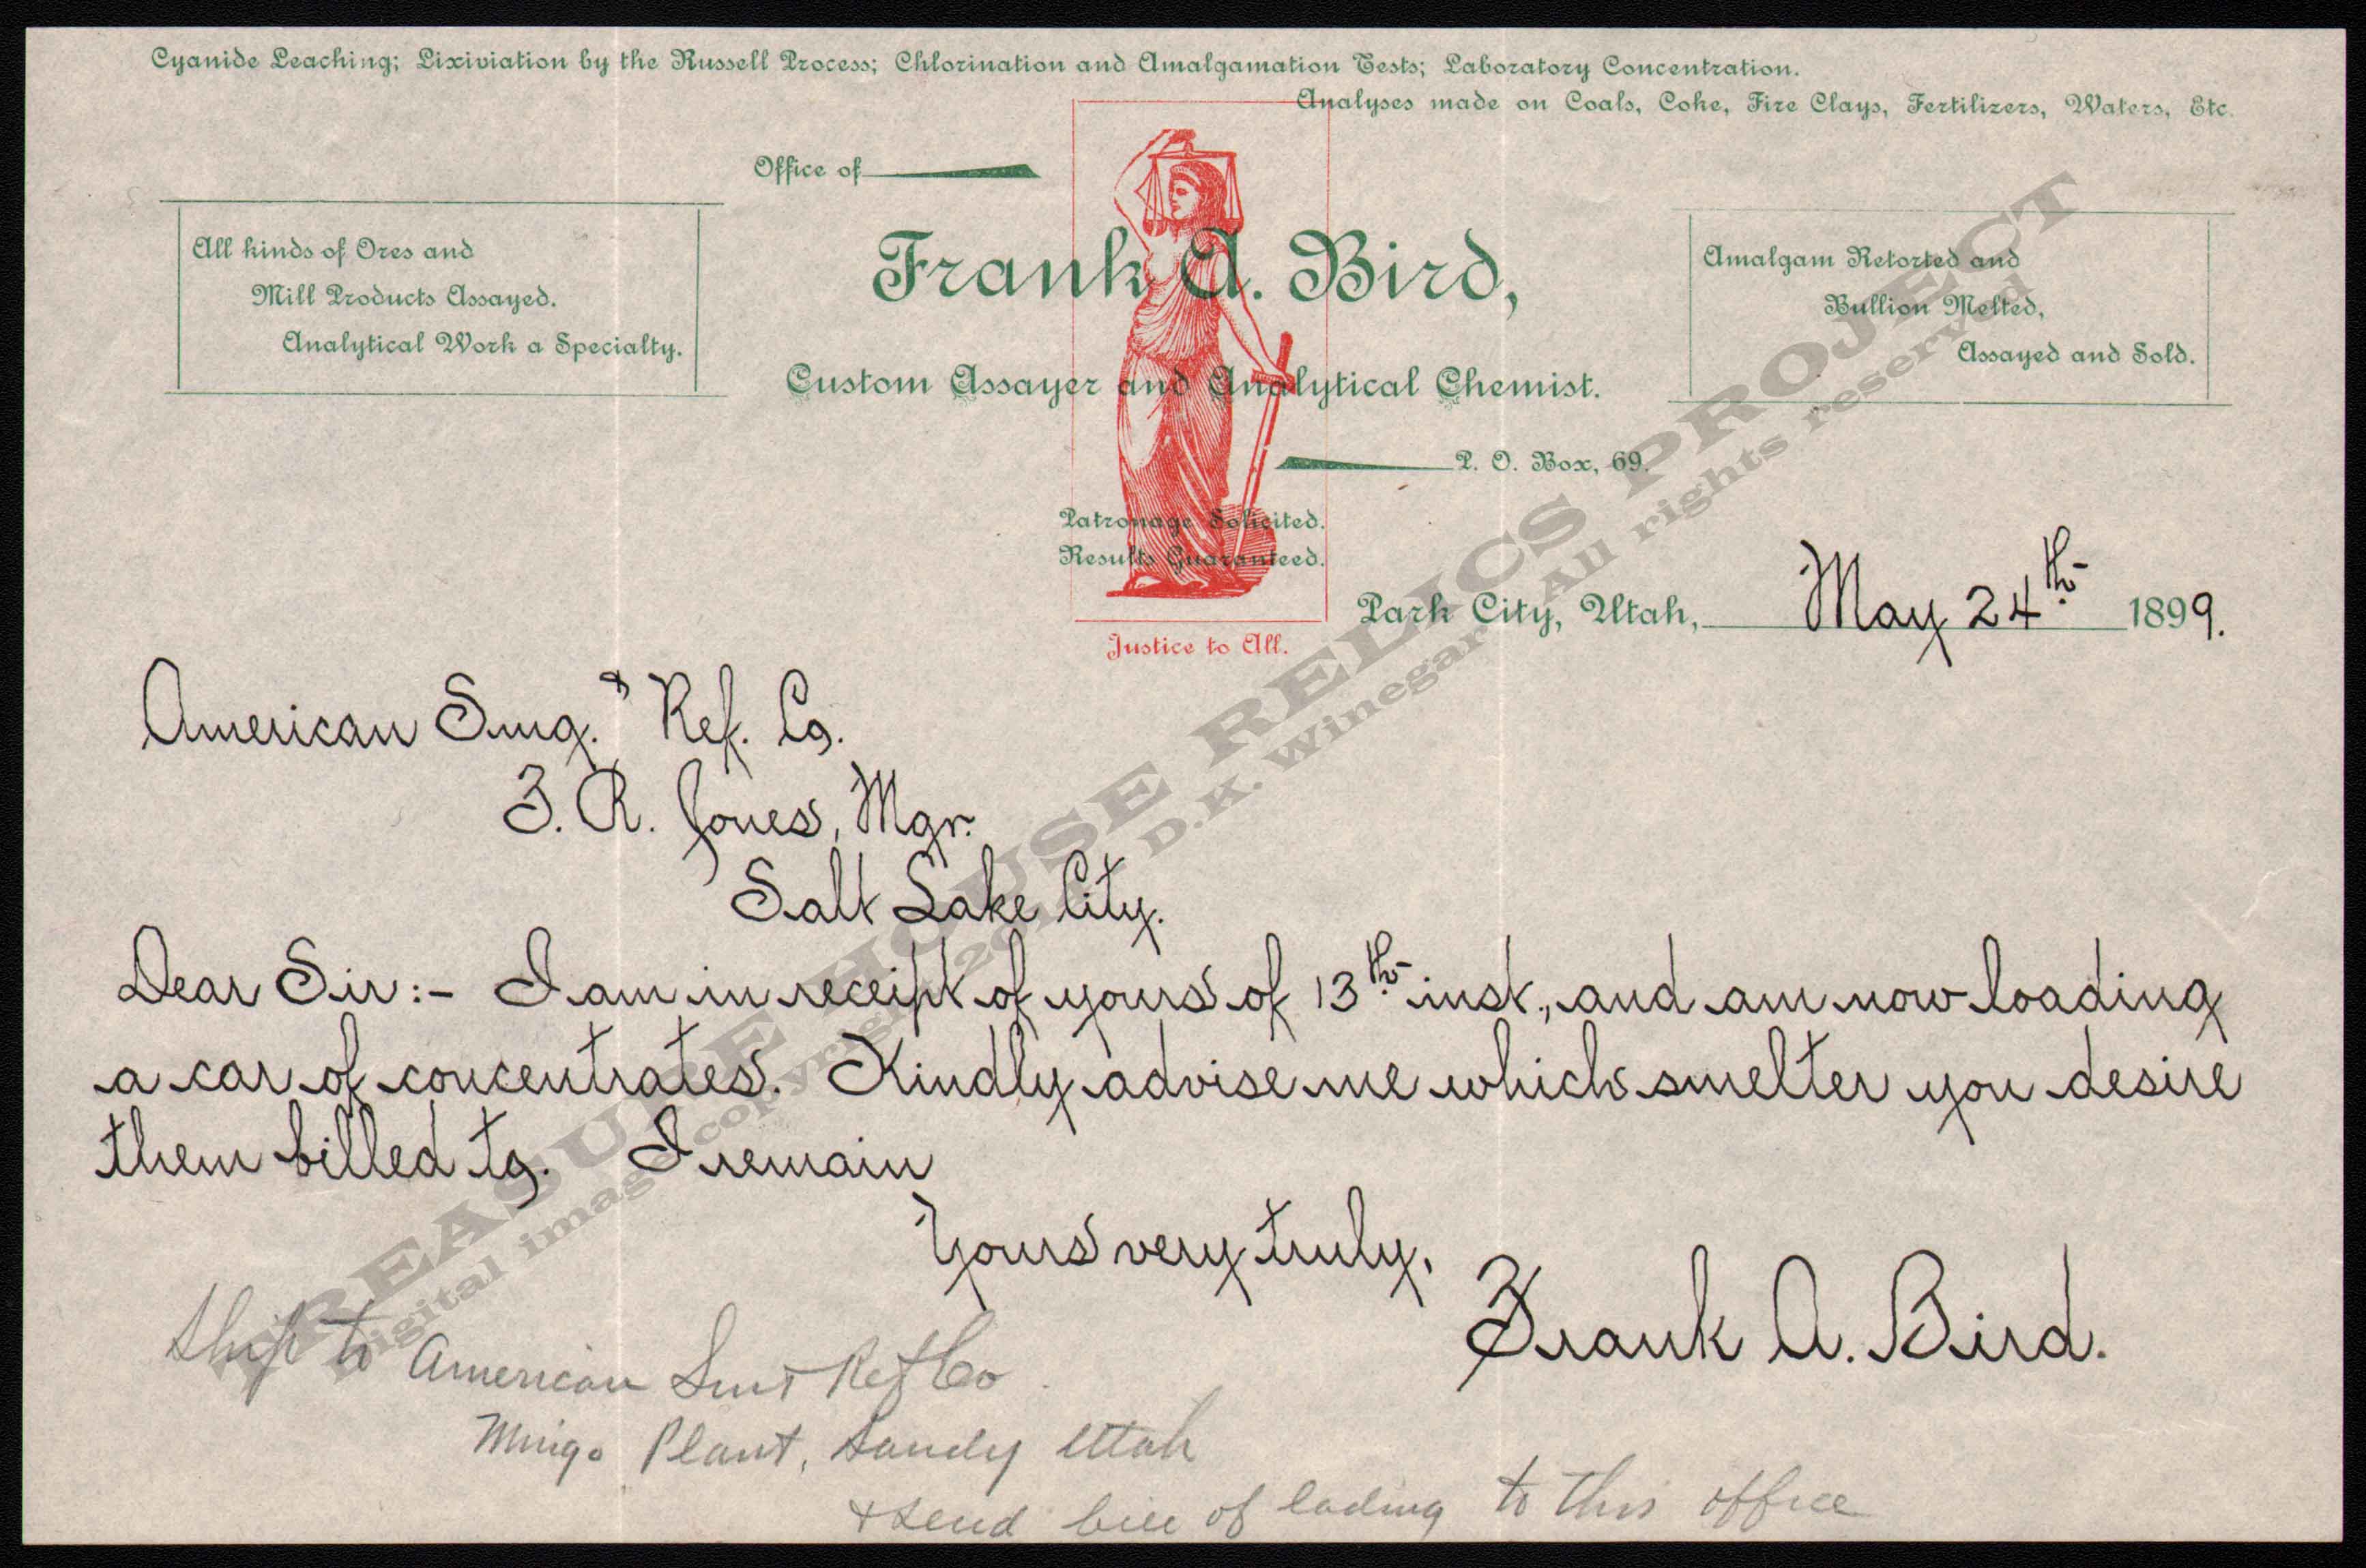 Cyanide Leaching; Lixiviation by the Russell Process; Chlorination and Amalgamation Tests; Laboratory Concentration.
Analyses made on Coals, Coke, Fire Clays, Fertilizers, Waters, Etc.
Office of
All kinds of Ores and
Mill Products Assayed.
Analytical Work a Specialty.
Frank A. Bird,
Custom Assayer and Analytical Chemist.
Amalgam Retorted and
Bullion Melted,
Assayed and Sold.
P. O. Box, 69.
Patronage Solicited.
Results Guaranteed.
Justice to All.
Park City, Utah, May 24th 1899.
American Smg. & Ref. Co.
F. R. Jones, Mgr.
Salt Lake City.
Dear Sir:- I am in receipt of yours of 13th inst., and am now loading
a car of concentrates. Kindly advise me which smelter you desire
them billed to. I remain
Yours very truly,
Frank A. Bird.
Ship to American Sm & Ref Co
Mingo Plant, Sandy Utah
& send bill of lading to this office
TREASURE HOUSE RELICS PROJECT
Digital image copyright D.K. Winegar All rights reserved